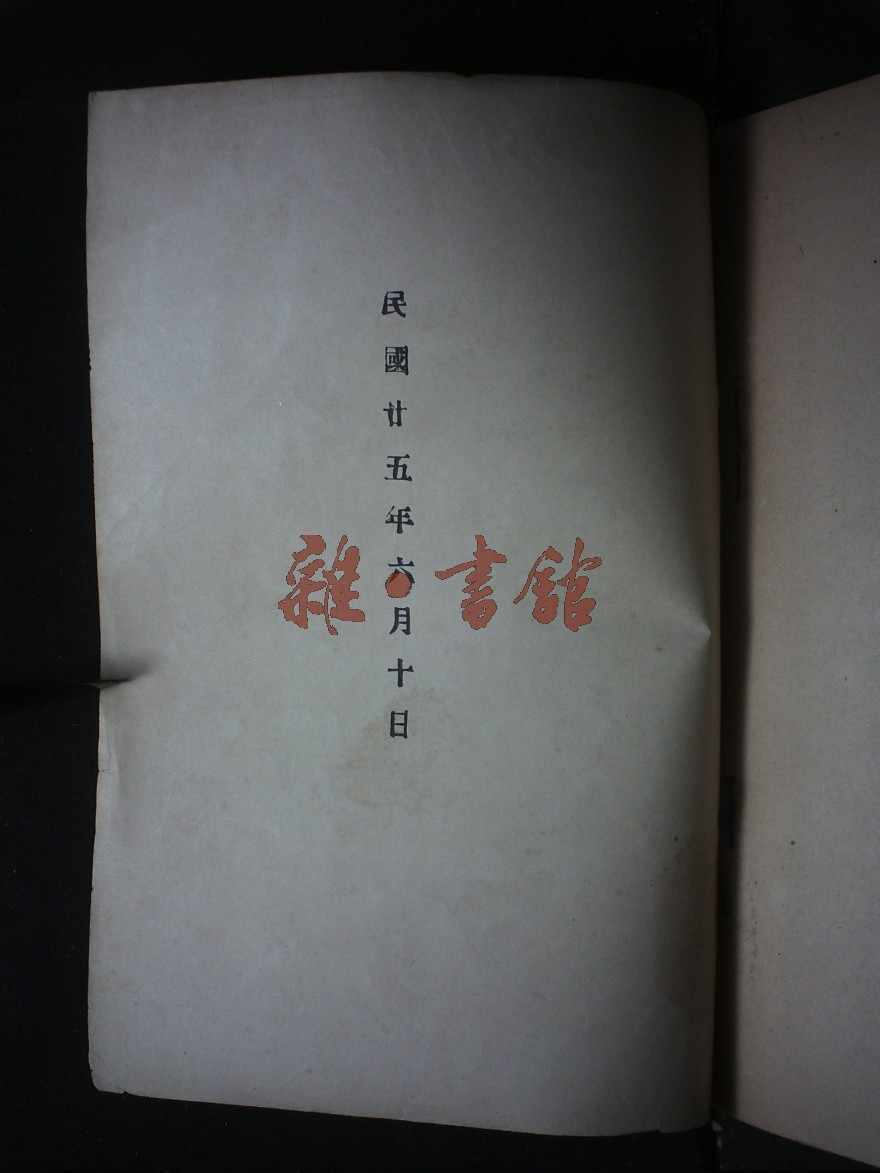 民國廿五年六月十日
雜·書館